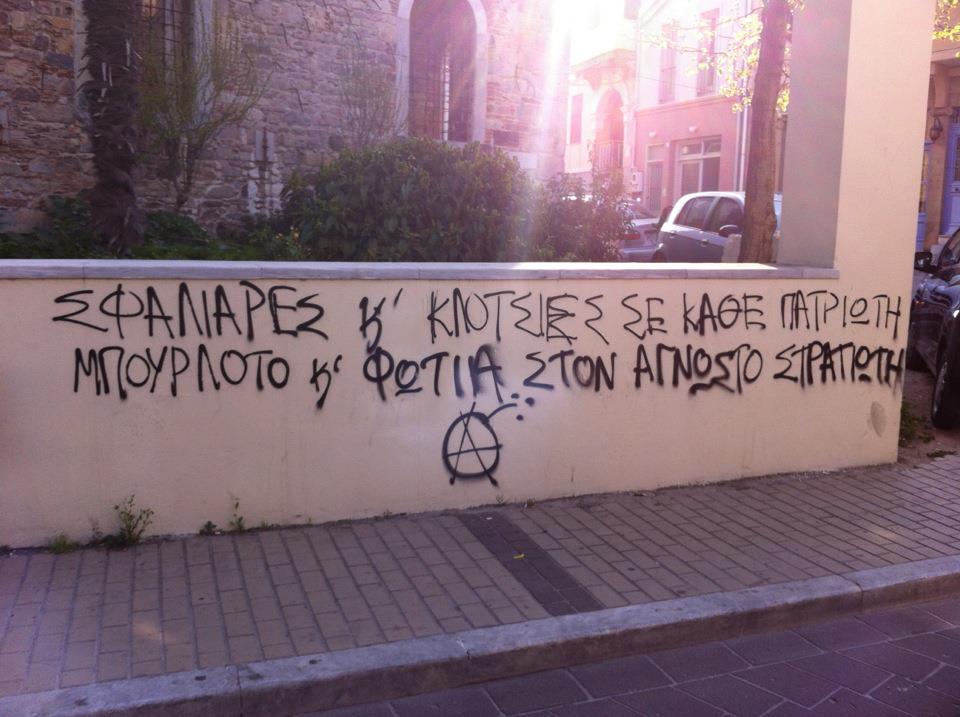 ΣΦΑΛΙΑΡΕΣ Κ' ΚΛΟΤΣΙΕΣ ΣΕ ΚΑΘΕ ΠΑΤΡΙΩΤΗ
ΜΠΟΥΡΛΟΤΟ Κ' ΦΩΤΙΑ ΣΤΟΝ ΑΓΝΩΣΤΟ ΣΤΡΑΤΙΩΤΗ